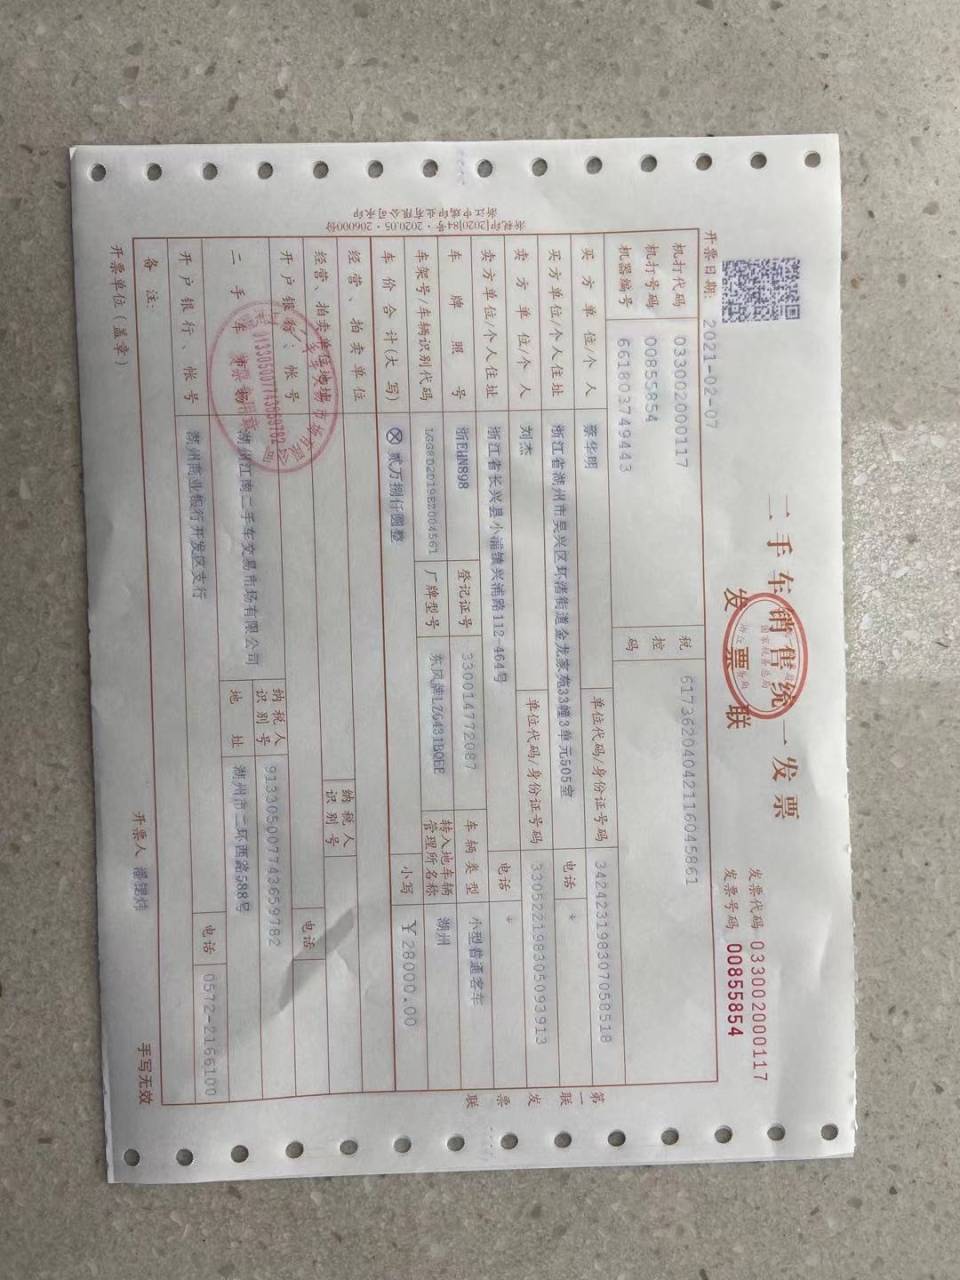 二手车销售统一发票
发票联
发票代码 033002000117
发票号码 00855854
开票日期: 2021-02-07
机打代码 033002000117
机打号码 00855854
机器编号 661803749443
税控码 61736204042116045861
买方单位/个人 蔡华明 单位代码/身份证号码 342423198307058518
买方单位/个人住址 浙江省湖州市吴兴区环渚街道金龙家苑33幢3单元505室 电话
卖方单位/个人 刘杰 单位代码/身份证号码 330522198305093913
卖方单位/个人住址 浙江省长兴县小浦镇兴浦路112-464号 电话
车牌照号 浙EWN898 登记证号 330014772087 车辆类型 小型普通客车
车架号/车辆识别代码 LGG8D2D19EZ004561 厂牌型号 东风牌LZ6431BQEE 转入地车辆管理所名称 湖州
车价合计(大写) ⊗贰万捌仟圆整 小写 ￥28000.00
经营、拍卖单位
经营、拍卖单位地址 纳税人识别号
开户银行、帐号 电话
二手车市场 湖州江南二手车交易市场有限公司 纳税人识别号 913305007743659782
地址 湖州市二环西路588号
开户银行、帐号 湖州商业银行开发区支行 电话 0572-2166100
备注:
开票单位(盖章) 开票人 手写无效
第一联 发票联
913305007743659782
国家税务总局